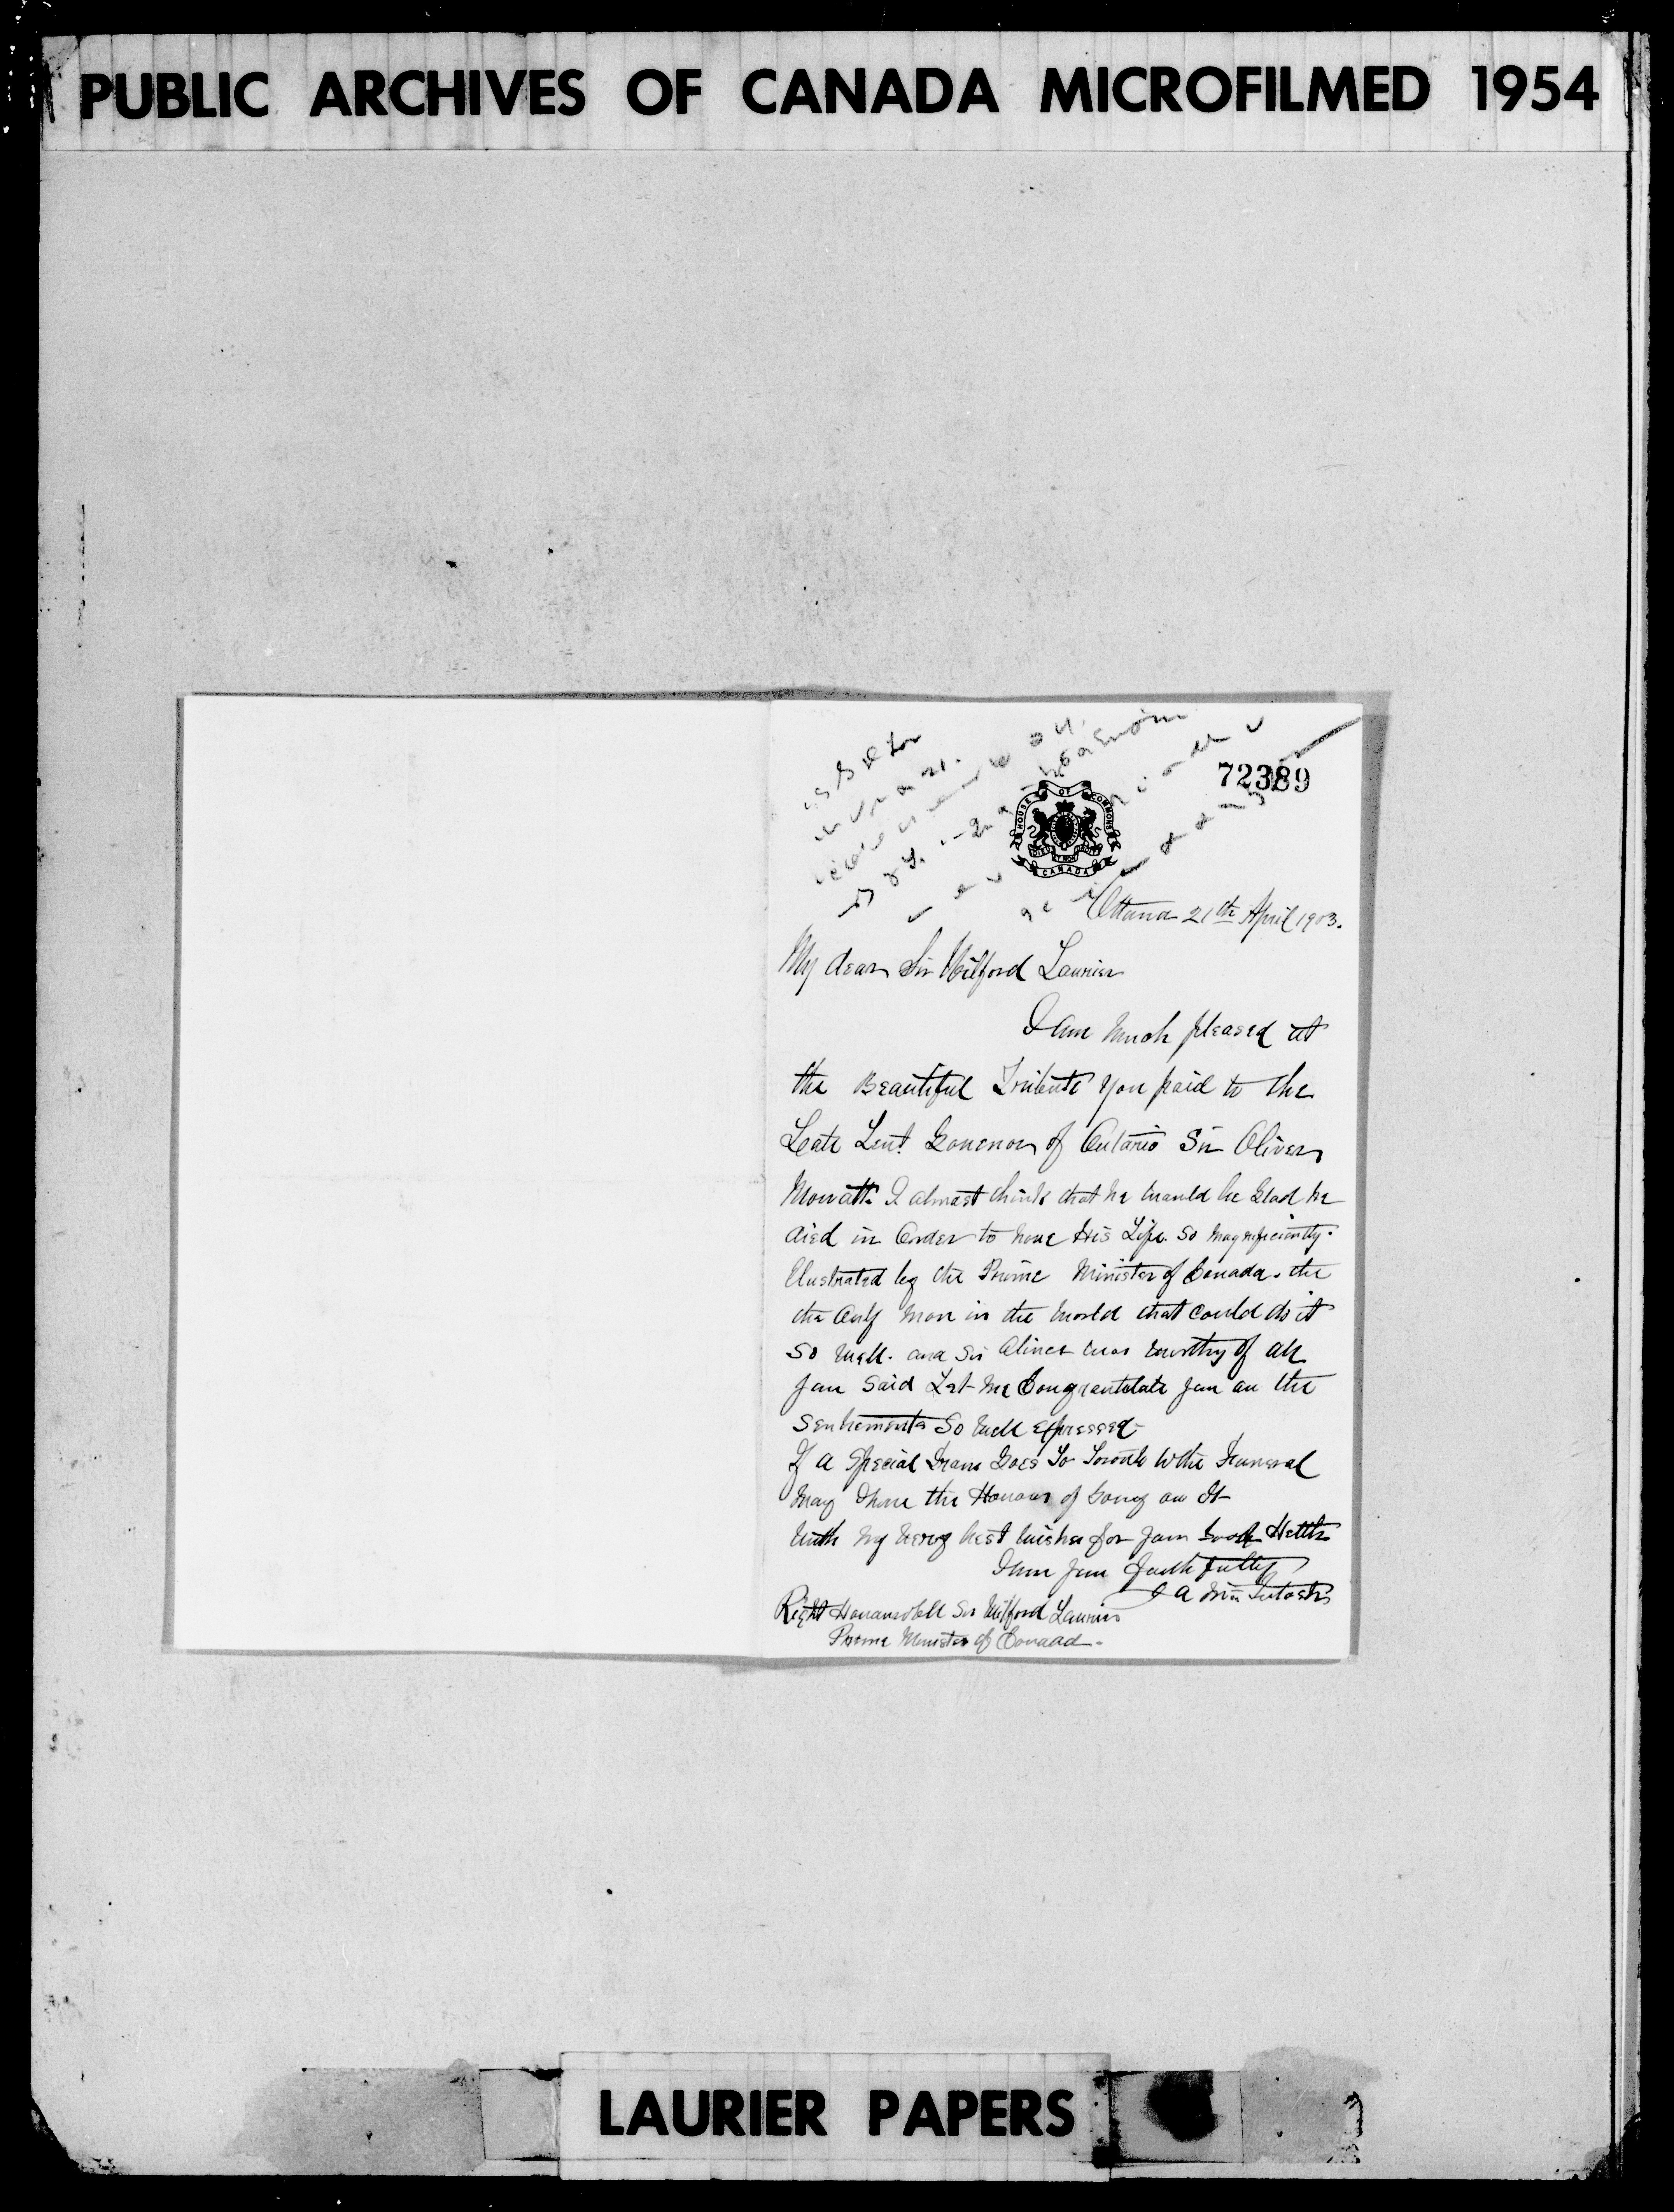 PUBLIC ARCHIVES OF CANADA MICROFILMED 1954
72389
HOUSE OF COMMONS
CANADA
Ottawa 21th April 1903.
My dear Sir Wilford Laurier
I am much pleased at
the Beautiful Tribute you paid to the
Late Leut Govenor of Ontario Sir Oliver
Mowatt. I almost think that he would be Glad he
died in Order to have His Life so magnificiently.
Elustrated by the Prime Minister of Canada. the
the Only man in the World that could do it
so well. and Sir Oliver was worthy of all
you said Let me Congrautelate you on the
sentiements so well expressed
If a Special Train Goes To Toronto to the Funeral
may I have the Honour of Going on It
With my very best wishes for your Good Helth
I am your faithfully
J A McIntosh
Right Honourabell Sir Wilford Laurier
Prime Minister of Canaad.
LAURIER PAPERS